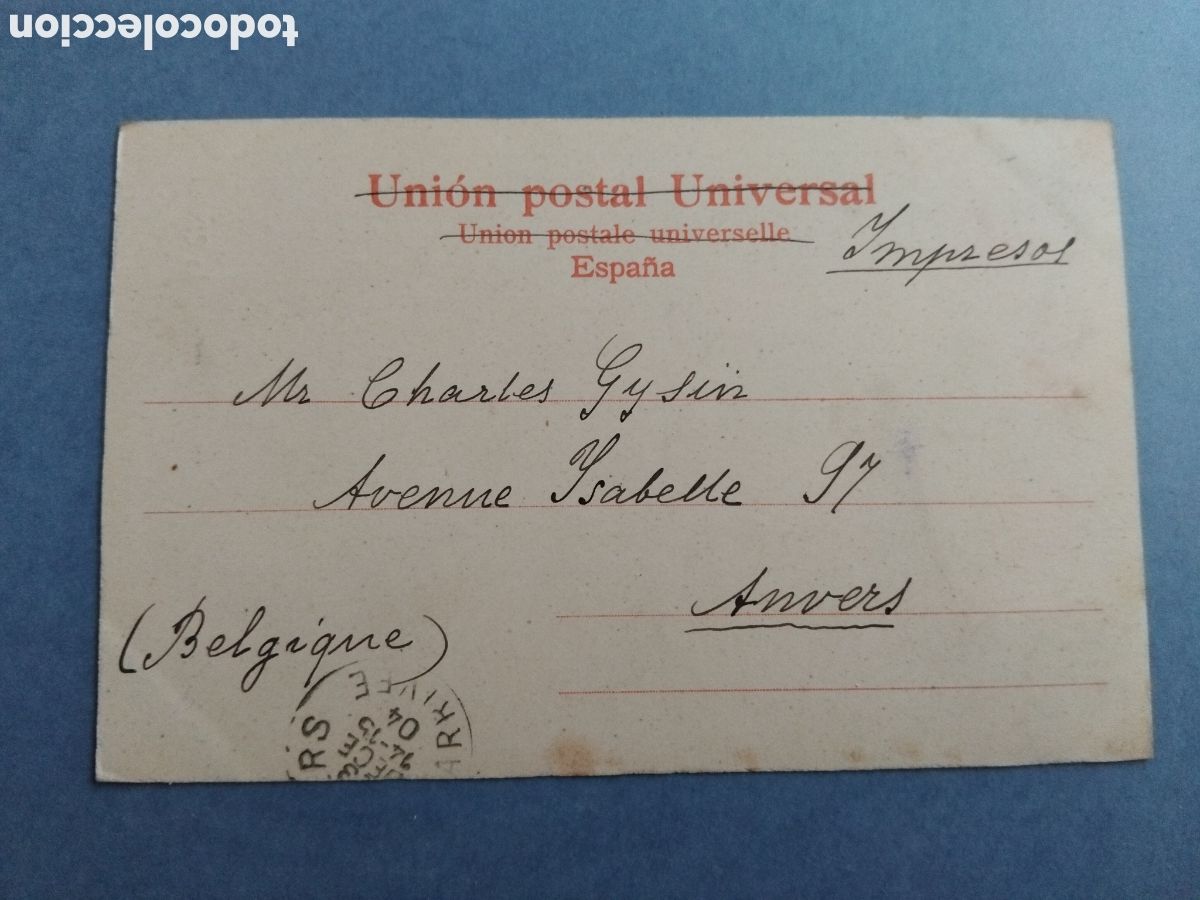 todocoleccion
Unión postal Universal
Union postale universelle
España
Impresos
Mr Charles Gysin
Avenue Ysabelle 97
Anvers
(Belgique)
RS
04